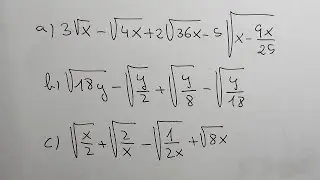 a) 3√x − √4x + 2√36x − 5√(x − 9x/25)
b) √18y − √(y/2) + √(y/8) − √(y/18)
c) √(x/2) + √(2/x) − √(1/2x) + √8x